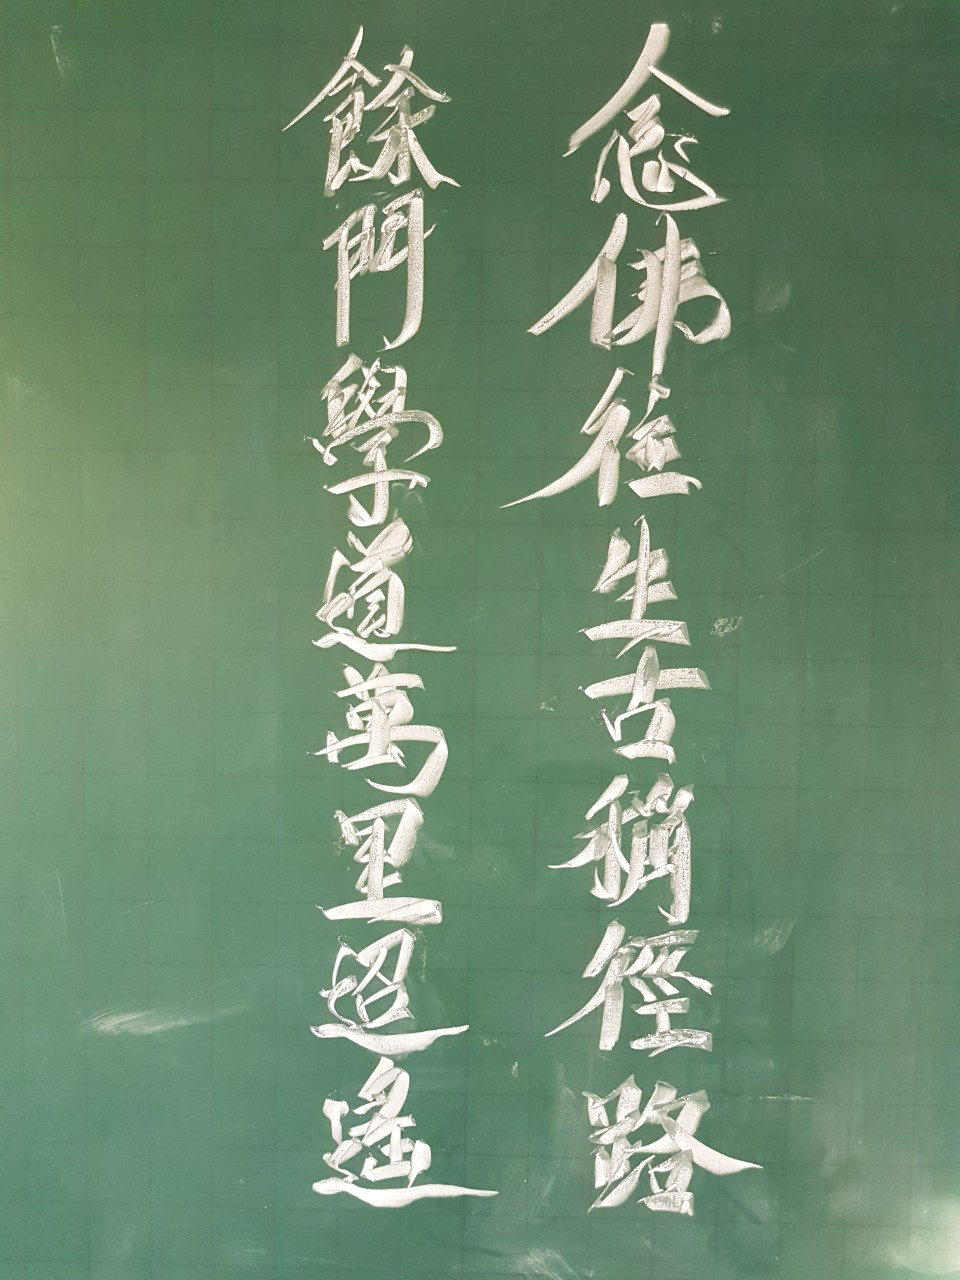 念佛徃生古稱徑路
餘門學道萬里迢遙